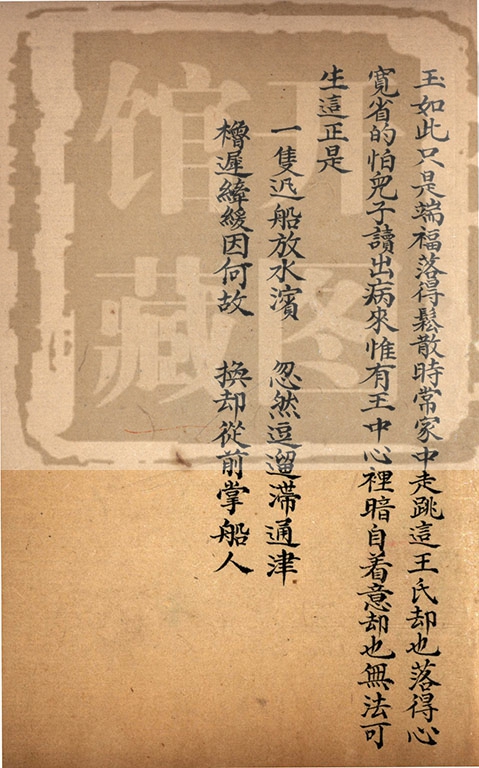 玉如此只是端福落得鬆散時常家中走跳這王氏却也落得心
寛省的怕兒子讀出病來惟有王中心裡暗自着意却也無法可
生這正是
一隻迅船放水濱　忽然逗遛滯通津
櫓遲縴緩因何故　換却從前掌船人
开图
馆藏